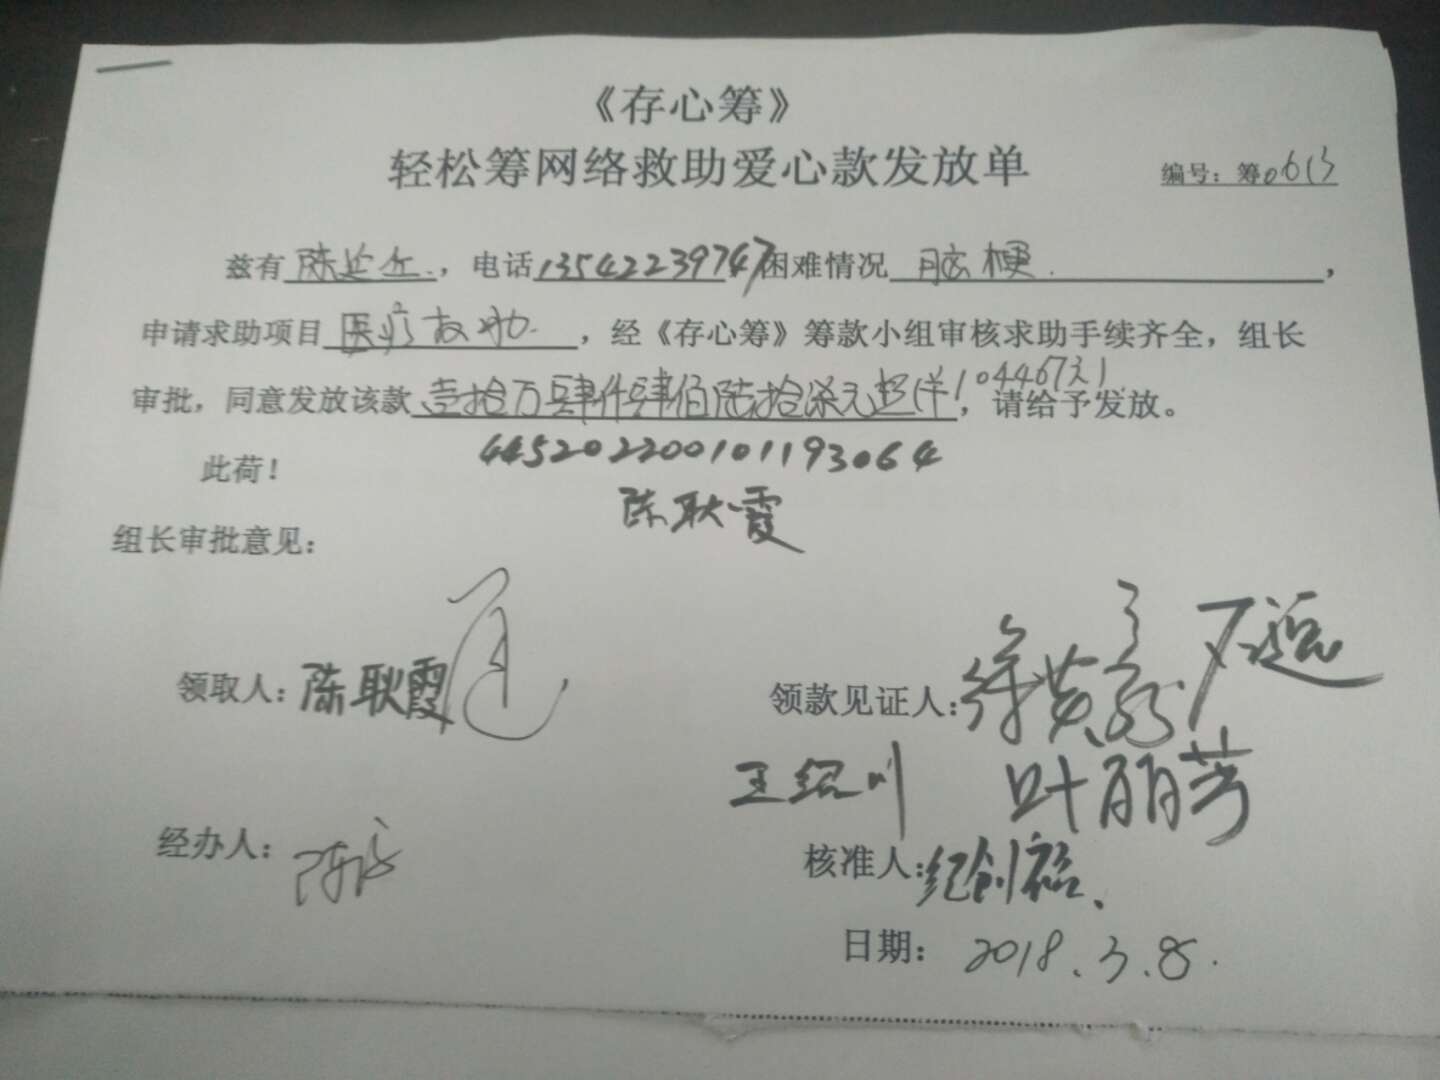 《存心筹》
轻松筹网络救助爱心款发放单
编号：筹0613
兹有陈延丘.，电话13542239747困难情况脑梗.，
申请求助项目医疗救助.，经《存心筹》筹款小组审核求助手续齐全，组长
审批，同意发放该款壹拾万肆仟肆佰陆拾柒元，请给予发放。
104467元
此荷！
445202200101193064
陈耿霞
组长审批意见：
领取人：陈耿霞
领款见证人：
王绍川 叶丽芳
经办人：
核准人：纪创裕、
日期：2018.3.8.